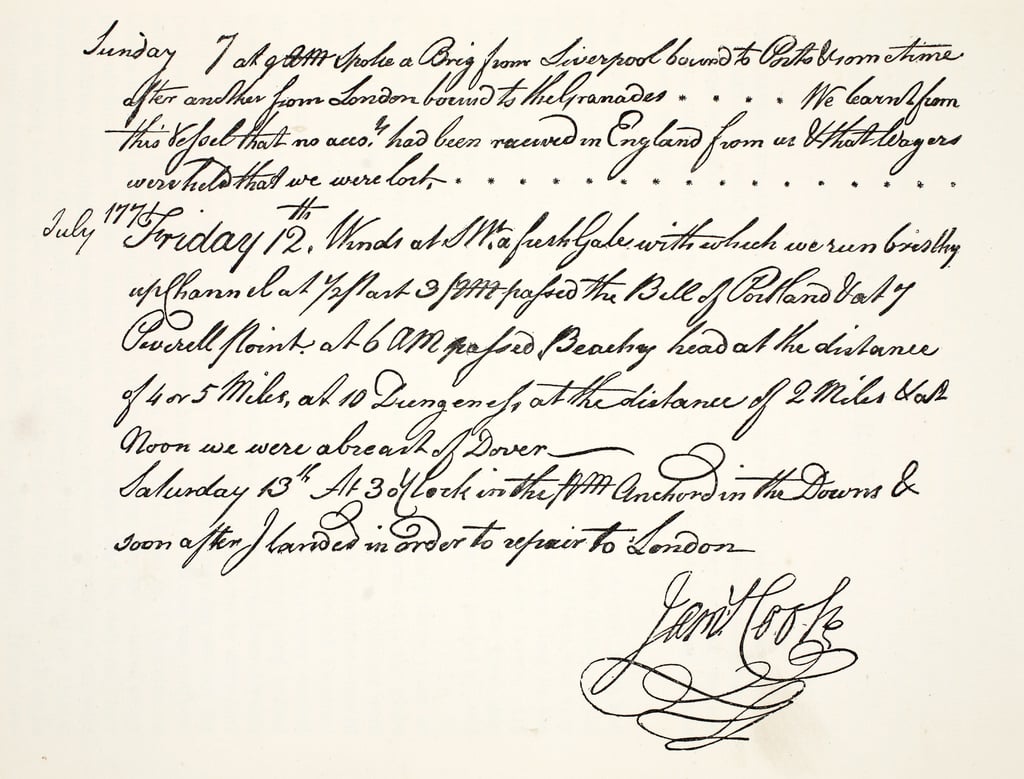 Sunday 7 at 9 AM spoke a Brig from Liverpool bound to Porto & some time
after another from London bound to the Granades * * * * * We learnt from
this Vessel that no acco.ts had been received in England from us & that Wagers
were held that we were lost. * * * * * * * * * * * * * * * * * *
July 1771 Friday 12.th Winds at SW.t a fresh Gale with which we run briskly
up Channel at 1/2 past 3 PM passed the Bill of Portland & at 7
Peverell Point. at 6 AM passed Beachy head at the distance
of 4 or 5 Miles, at 10 Dungeness, at the distance of 2 Miles & at
Noon we were abreast of Dover
Saturday 13th At 3 oClock in the PM Anchord in the Downs &
soon after I landed in order to repair to London
Jam.s Cook